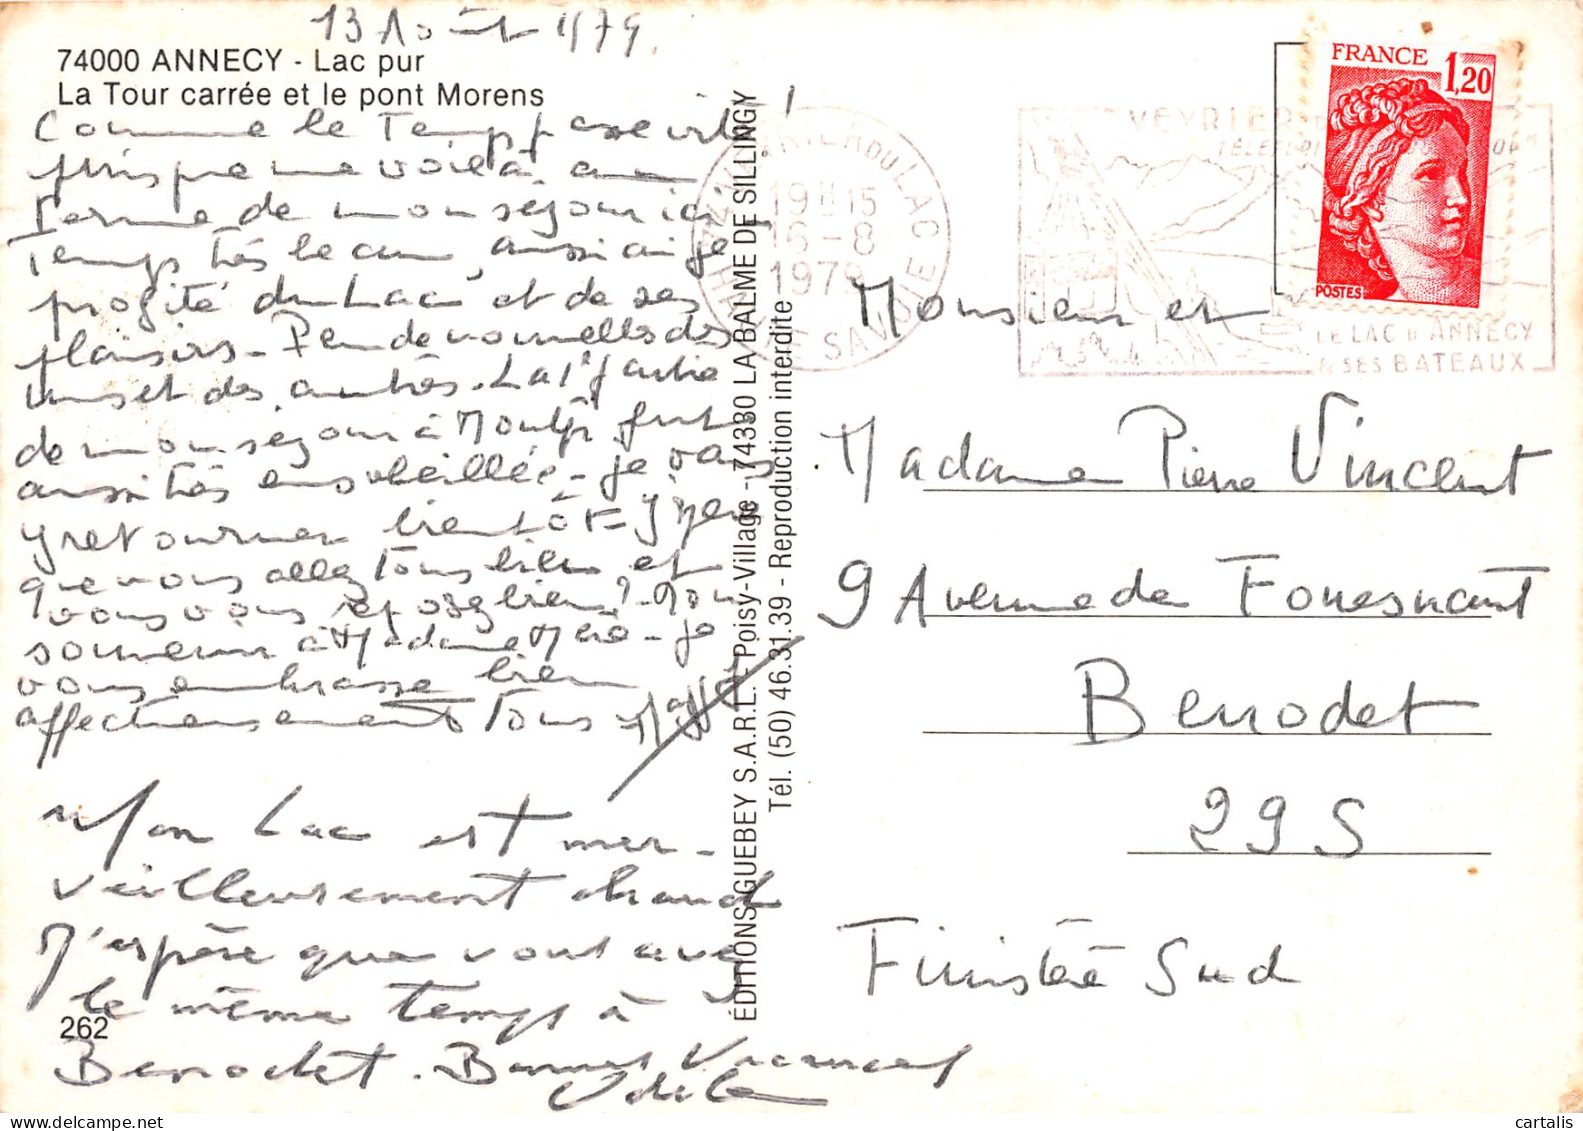 13 Août 1979.
74000 ANNECY - Lac pur
La Tour carrée et le pont Morens
Comme le Temps passe vite !
puisque me voilà au
Terme de mon séjour ici
Temps très beau, aussi ai je
profité du Lac et de ses
plaisirs - Peu de nouvelles des
uns et des autres. La 1e partie
de mon séjour à fut
aussi très ensoleillée - je vais
y retourner bientôt - J'espère
que vous allez Tous bien et
vous vous reposez bien ? - Mon
souvenir à Madame Mère - je
vous embrasse bien
affectueusement Tous
Mon Lac est mer-
veilleusement chaud
J'espère que vous avez
le même temps à
Benodet. Bonnes Vacances
Odile
262
ÉDITIONS GUEBEY S.A.R.L. - Poisy-Village - 74330 LA BALME DE SILLINGY
Tél. (50) 46.31.39 - Reproduction interdite
VEYRIER DU LAC
19H15
16-8
1979
HTE SAVOIE
VEYRIER
LE LAC D'ANNECY
& SES BATEAUX
FRANCE 1,20
POSTES
Monsieur et
Madame Pierre Vincent
9 Avenue de Fouesnant
Benodet
29 S
Finistère Sud
cartalis